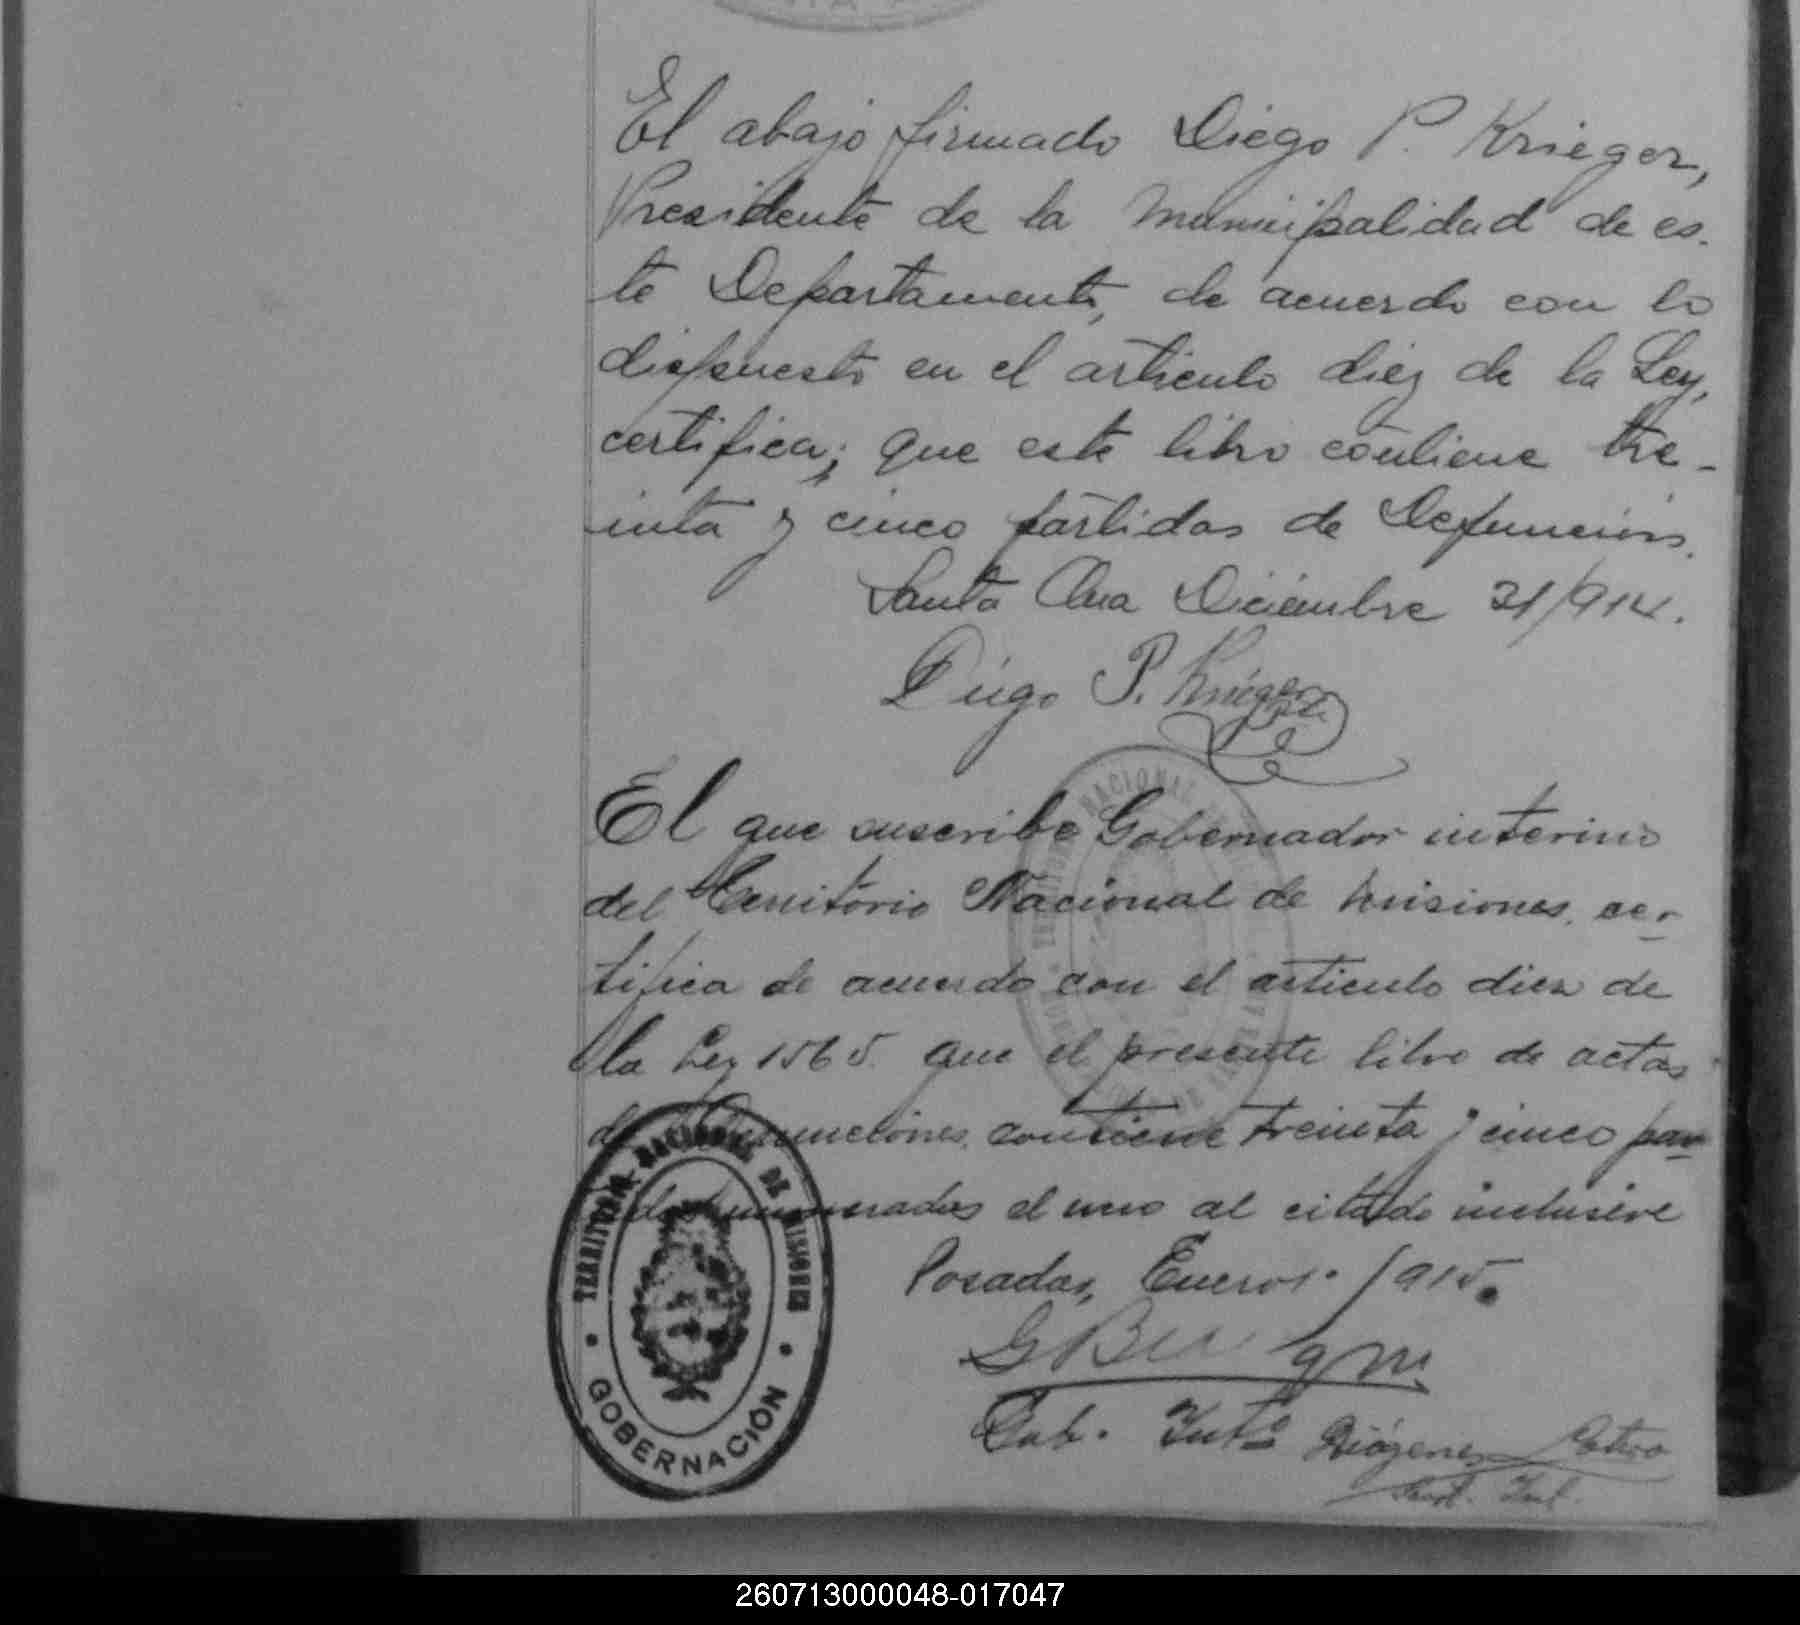 El abajo firmado Diego P. Krieger,
Presidente de la Municipalidad de es-
te Departamento, de acuerdo con lo
dispuesto en el articulo diez de la Ley,
certifica; que este libro contiene tre-
inta y cinco partidas de Defunción.
Santa Ana Diciembre 31/914.
Diego P. Krieger
El que suscribe Gobernador interino
del Territorio Nacional de Misiones, cer-
tifica de acuerdo con el articulo diez de
la Ley 1565. que el presente libro de actas
contiene treinta y cinco par-
el uno al citado inclusive
Posadas, Enero 1915.
Gob. Int.º Diógenes
TERRITORIO NACIONAL DE MISIONES
GOBERNACIÓN
260713000048-017047